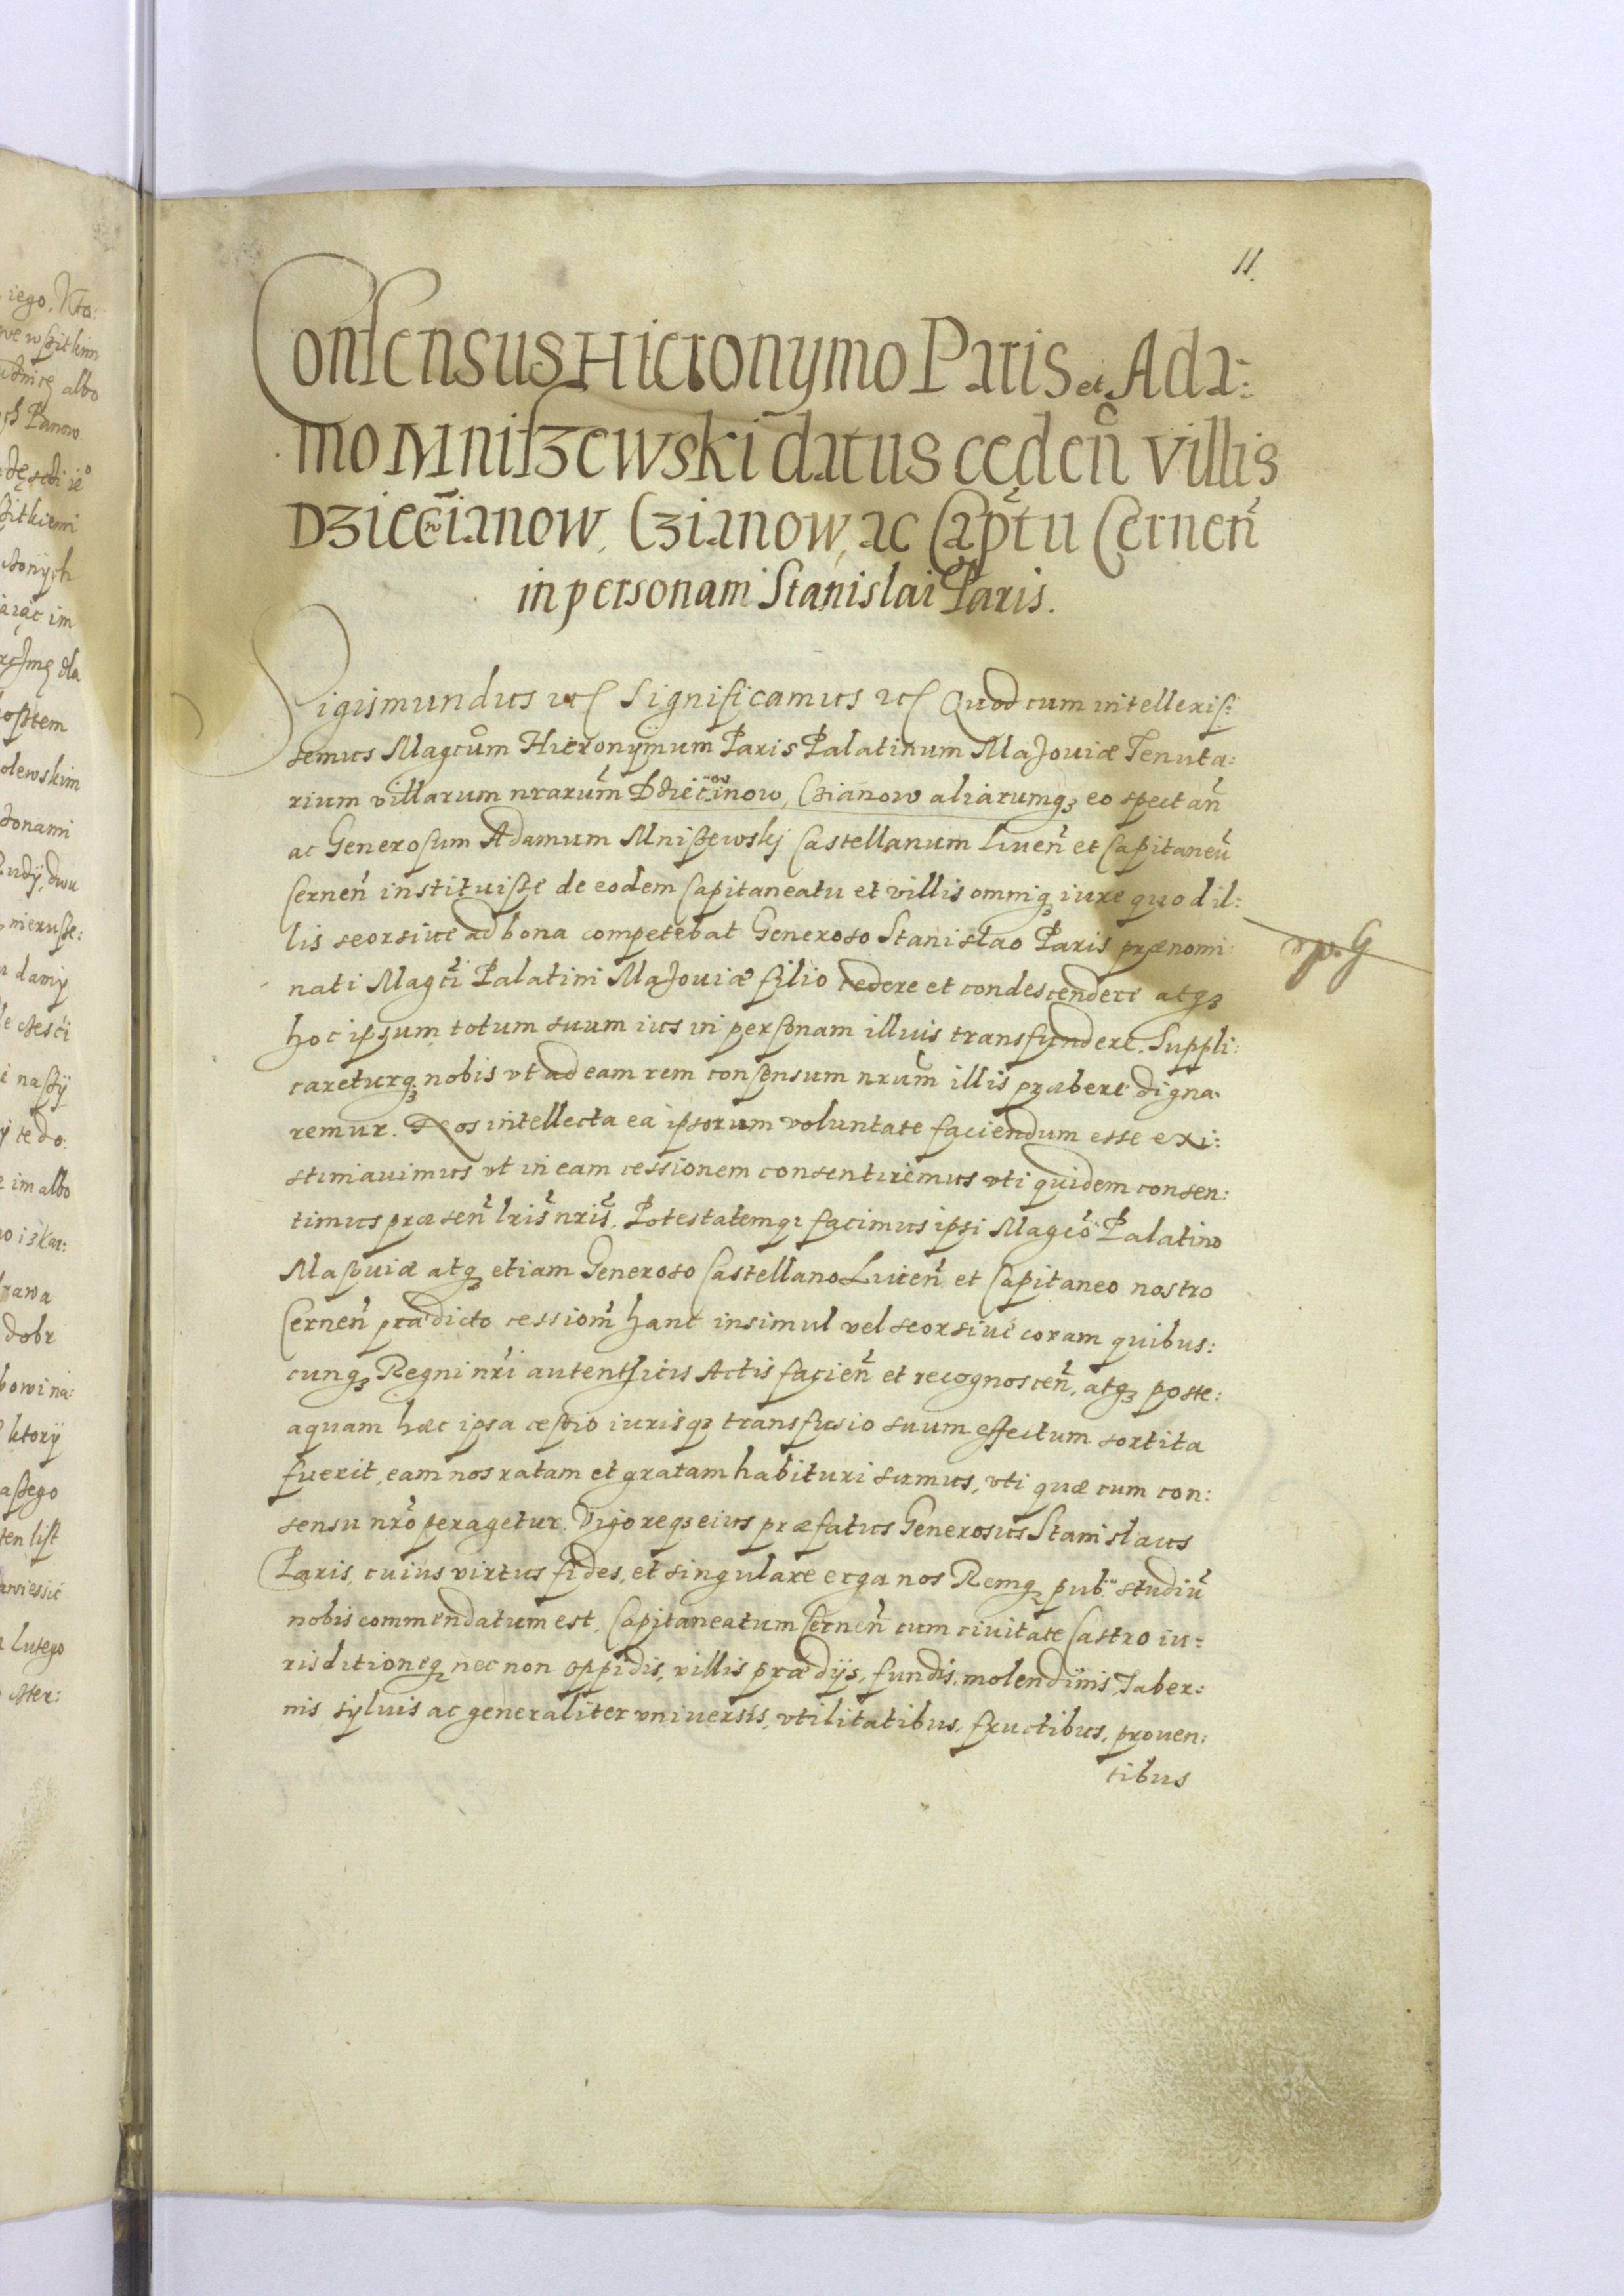 iego. Kto:
we wszitkim
albo
Panow
szitkiemi
im
dla
olewskim
donami
dwu
i naszÿ
im albo
rawa
dobr
ktorÿ
aszego
ten list
Lutego
11.
Consensus Hieronymo Paris et Ada:
mo Mniszewski datus cędeñ villis
Dzieciañow, Czianow, ac Captu Cerneñ
in personam Stanislai Paris.
Sigismundus etc Significamus etc Quod cum intellexis:
semus Magcum Hieronymum Paris Palatinum Mazouiæ Tenuta:
rium villarum nrarum Dziecinow, Czianow aliarumq3 eo spectañ
ac Generosum Adamum Mniszewskj Castellanum Liueñ et Capitaneu
Cerneñ instituisse de eodem Capitaneatu et villis omniq3 iure quod il:
lis seorsiue ad bona competebat Generoso Stanislao Paris prænomi:
nati Magci Palatini Mazouiæ filio cedere et condescendere atq3
hoc ipsum totum suum ius in personam illius transfundere. Suppli:
careturq3 nobis vt ad eam rem consensum nrum illis præbere digna:
remur. Nos intellecta ea ipsorum voluntate faciendum esse exi:
stimauimus vt in eam cessionem consentiremus vti quidem consen:
timus præseñ lris nris. Potestatemq3 facimus ipsi Magco Palatino
Masouiæ atq3 etiam Generoso Castellano Liueñ et Capitaneo nostro
Cerneñ prædicto cessiom hanc insimul vel seorsiue coram quibus:
cunq3 Regni nri autenthicis Actis facieñ et recognosceñ, atq3 poste:
aquam hæc ipsa cessio iurisq3 transfusio suum effectum sortita
fuerit, eam nos ratam et gratam habituri sumus, vti quæ cum con:
sensu nro peragetur. Vigoreq3 eius præfatus Generosus Stanislaus
Paris, cuius virtus fides, et singulare erga nos Remq3 pub: studiu
nobis commendatum est, Capitaneatum Cerneñ cum ciuitate Castro iu:
risditioneq3 nec non oppidis, villis prædijs, fundis, molendinis, Taber:
nis syluis ac generaliter vniuersis, vtilitatibus, fructibus, prouen:
tibus